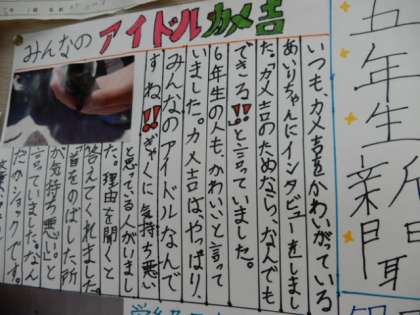 五年生新聞
みんなのアイドルカメ吉
いつも、カメ吉をかわいがっている
あいりちゃんにインタビューをしまし
た。「カメ吉のためなら、なんでも
できる!!」と言っていました。
6年生の人も、かわいいと言って
いました。カメ吉は、やっぱり、
みんなのアイドルなんで
すね!!ぎゃくに気持ち悪い
と思っている人がいまし
た。理由を聞くと
答えてくれました
「首をのばした所
が気持ち悪い。」と
言っていました。なん
だかショックです。